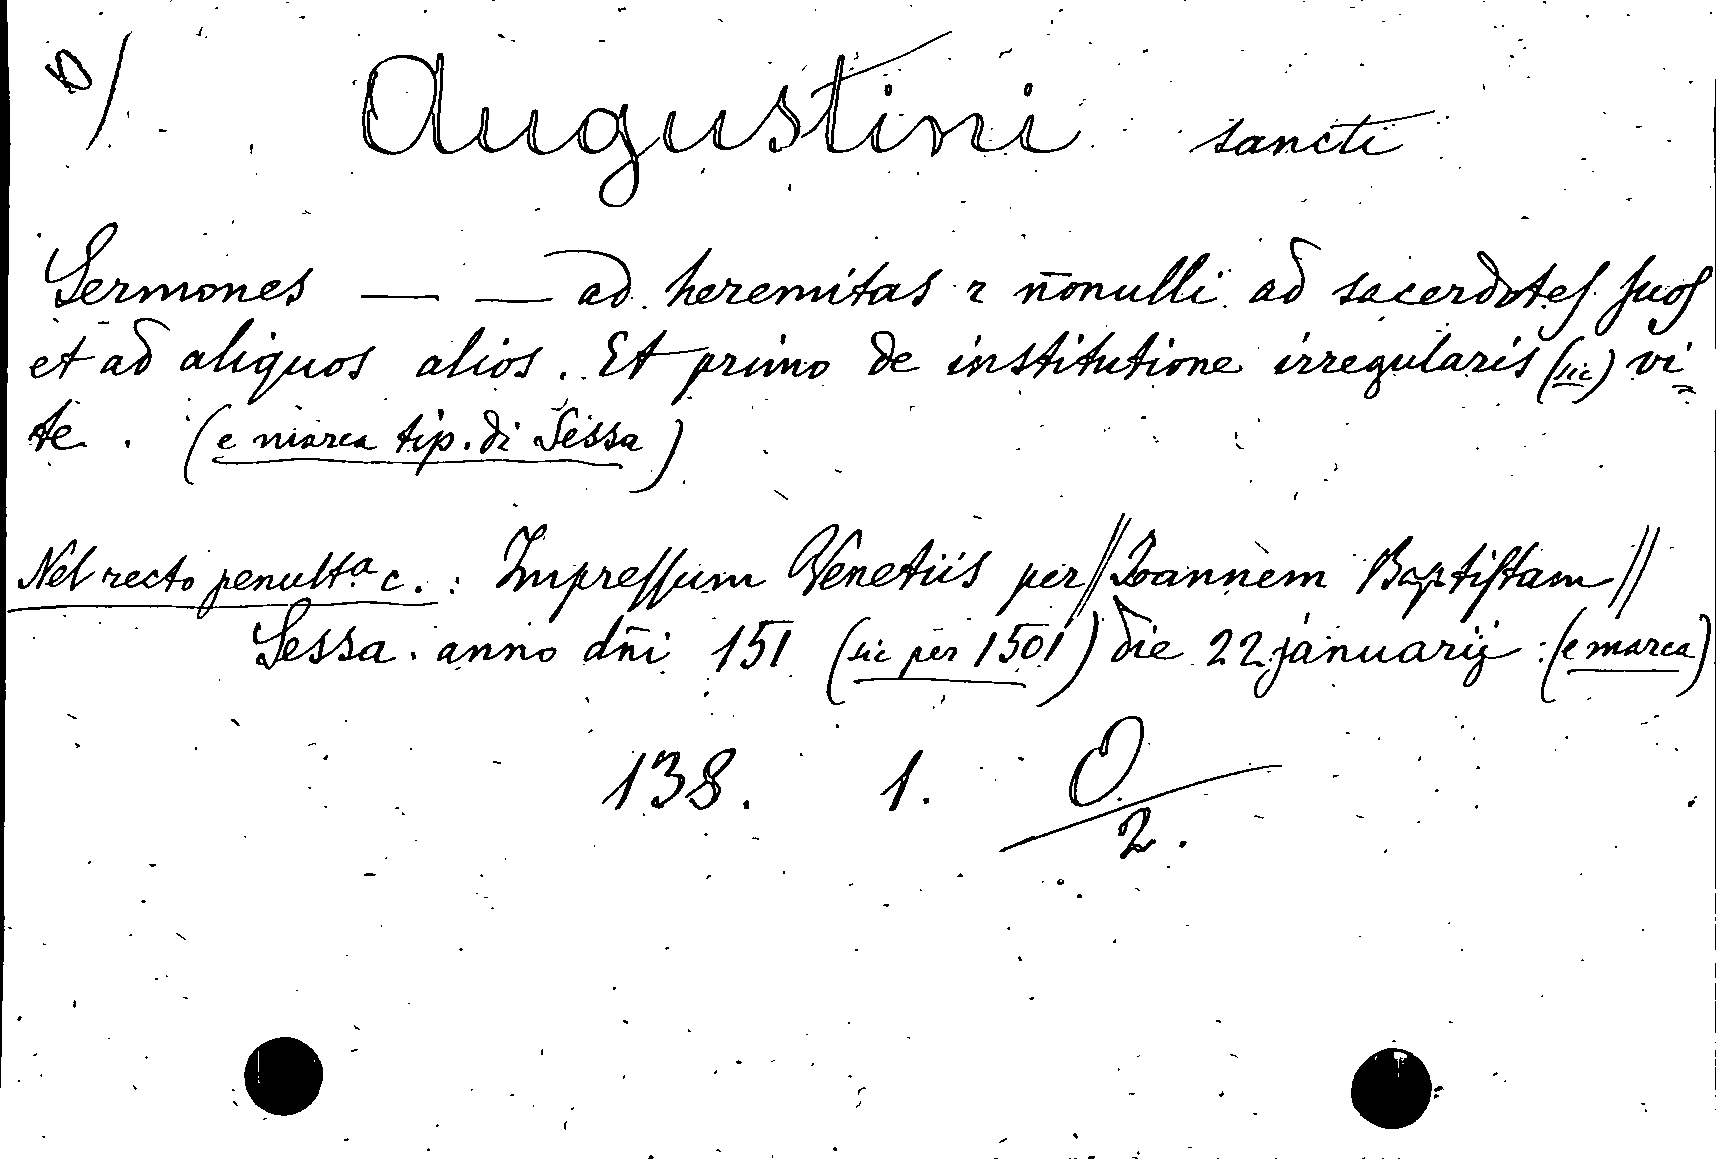 D/ Augustini sancti
Sermones — — ad heremitas ⁊ nõnulli ad sacerdoteſ ſuoſ
et ad aliquos alios. Et primo de institutione irregularis (sic) vi=
te. (e marca tip. di Sessa)
Nel recto penult.ª c.: Impreſſum Venetiis per // Ioannem Baptiſtam //
Sessa. anno dñi 151 (sic per 1501) die 22 januarij: (e marca)
138. 1. O/2.